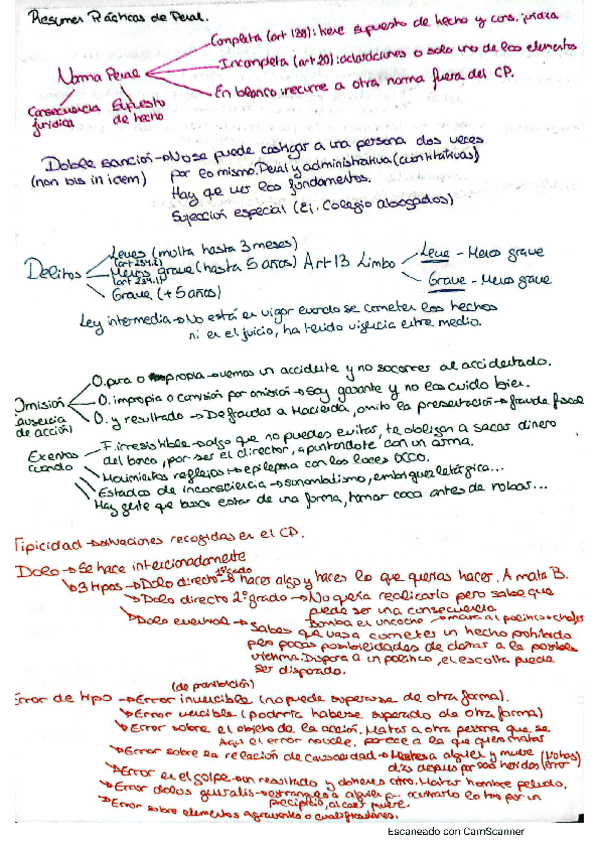 Resumen Prácticas de Penal.
Completa (art 138): tiene supuesto de hecho y cons. jurídica
Norma Penal
Incompleta (art 20): aclaraciones o solo uno de los elementos
En blanco: recurre a otra norma fuera del CP.
Consecuencia jurídica
Supuesto de hecho
Doble sanción → No se puede castigar a una persona dos veces
(non bis in idem) por lo mismo. Penal y administrativa (cuantitativas)
Hay que ver los fundamentos.
Sujección especial (Ej. Colegio abogados)
Delitos
Leves (multa hasta 3 meses)
(art 234.2)
Menos grave (hasta 5 años) Art 13 Limbo
(art 234.1)
Grave (+ 5 años)
Leve - Menos grave
Grave - Menos grave
Ley intermedia → No está en vigor cuando se cometen los hechos
ni en el juicio, ha tenido vigencia entre medio.
Omisión
(ausencia de acción)
O. pura o propia → vemos un accidente y no socorres al accidentado.
O. impropia o comisión por omisión → Soy garante y no les cuido bien.
O. y resultado → Defraudas a Hacienda, omito la presentación → fraude fiscal
Exentos cuando
F. irresistible → algo que no puedes evitar, te obligan a sacar dinero
del banco, por ser el director, apuntandote con un arma.
Movimientos reflejos → epilepsia con las luces
Estados de inconsciencia → sonambulismo, embriaguez letárgica...
Hay gente que busca estar de una forma, tomar coca antes de robar...
Tipicidad → situaciones recogidas en el CP.
Dolo → Se hace intencionadamente
3 tipos → Dolo directo 1º grado → haces algo y haces lo que querías hacer. A mata B.
Dolo directo 2º grado → No quería realizarlo pero sabe que
puede ser una consecuencia
Bomba en un coche → al político + chofer
Dolo eventual → Sabes que vas a cometer un hecho prohibido
pero pocas posibilidades de dañar a la posible
víctima. Dispara a un político, el escolta puede
ser disparado.
(de prohibición)
Error de tipo → Error invencible (no puede superarse de otra forma).
Error vencible (podría haberse superado de otra forma)
Error sobre el objeto de la acción. Matas a otra persona que se
parece a la que quieres matar
Aquí el error
Error sobre la relación de causalidad → a alguien y muere
días después por sus heridas
Error en el golpe → un resultado y obtienes otro. Matar hombre
Error dolus generalis → estrangulas a alguien y lo tiro por un
precipicio, al caer muere.
Error sobre elementos agravantes o cualificadores.
Escaneado con CamScanner